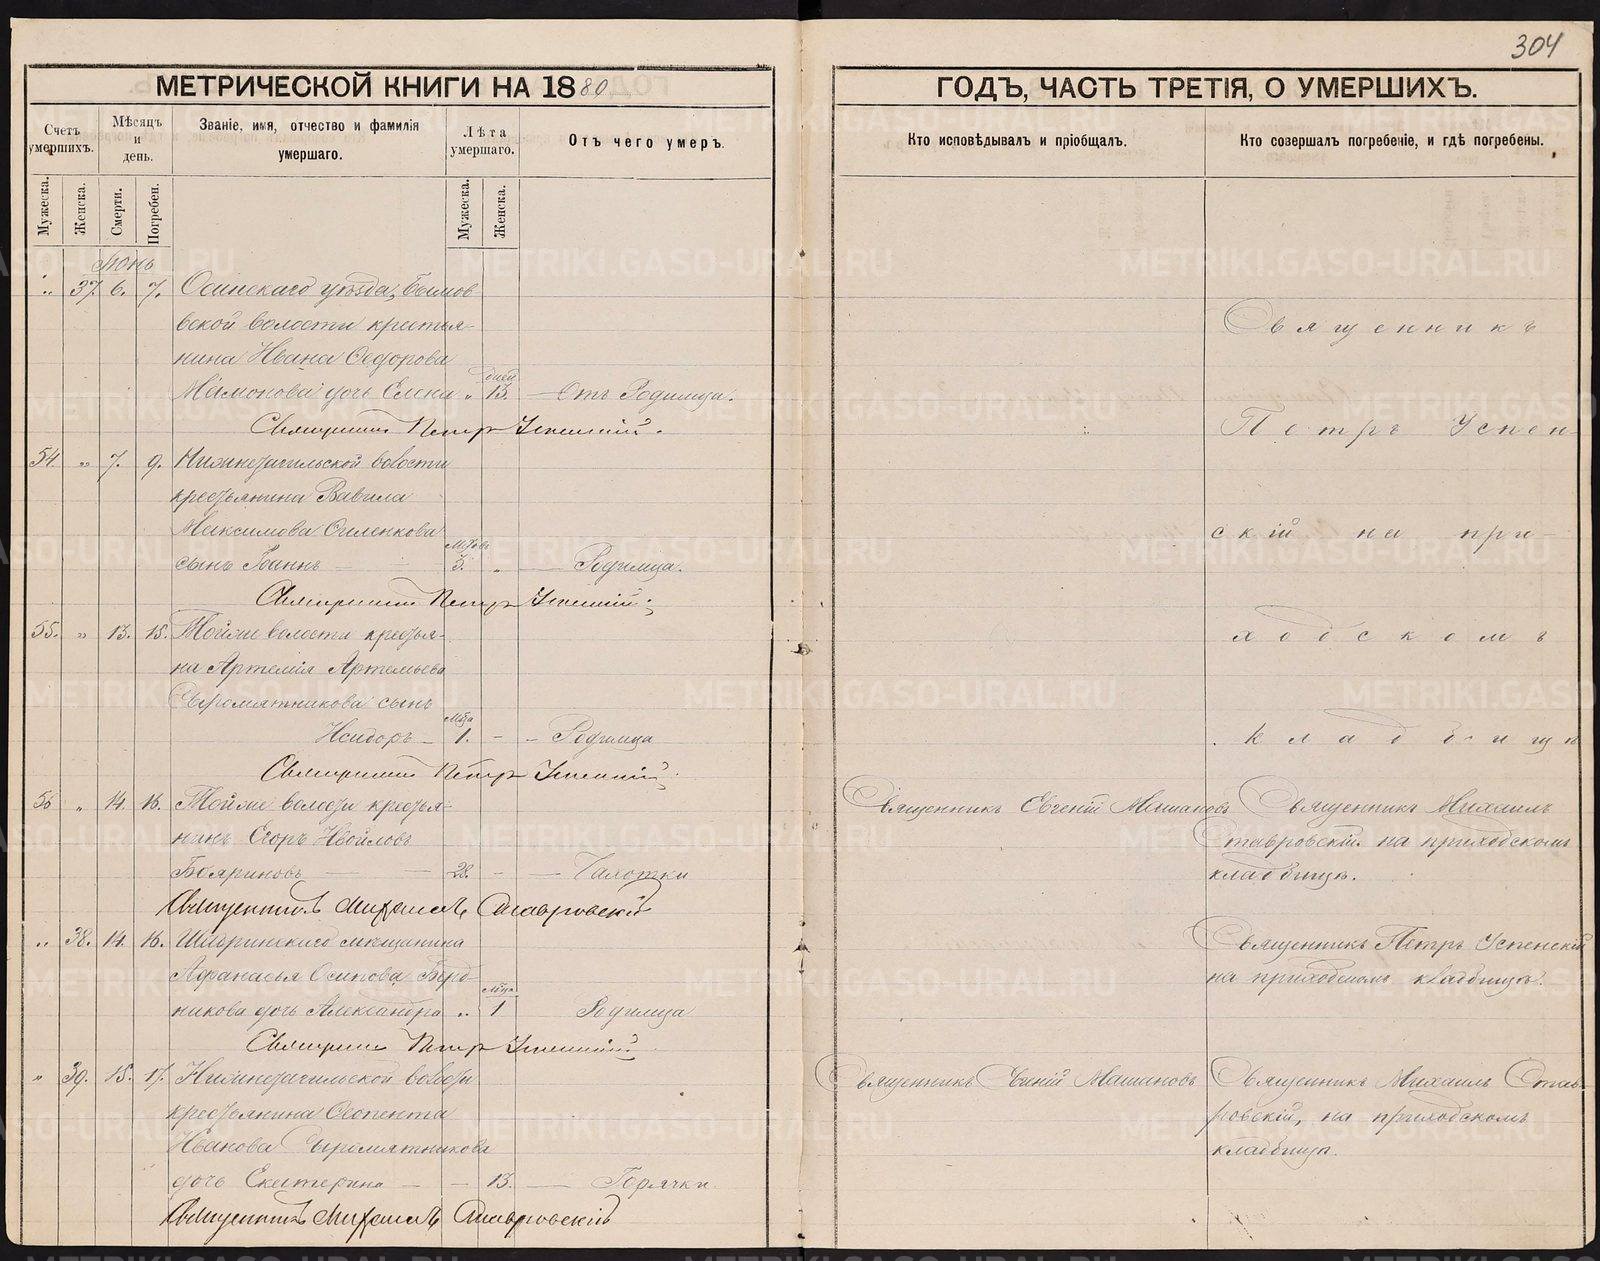 304
МЕТРИЧЕСКОЙ КНИГИ НА 1880
ГОДЪ, ЧАСТЬ ТРЕТІЯ, О УМЕРШИХЪ.
Счетъ умершихъ.
Мѣсяцъ и день.
Званіе, имя, отчество и фамилія умершаго.
Лѣта умершаго.
Отъ чего умеръ.
Кто исповѣдывалъ и пріобщалъ.
Кто совершалъ погребеніе, и гдѣ погребены.
Мужеска.
Женска.
Смерти.
Погребен.
Мужеска.
Женска.
Іюнь
" 37. 6. 7. Осинскаго уѣзда, Бымов
ской волости крестья-
нина Ивана Ѳедорова
дней
Мамонова дочь Елена " 13. — Отъ Родимца.
Священникъ Петръ Успенскій.
54 " 7. 9. Нижнетагильской волости
крестьянина Вавила
Максимова
мѣсяц
сынъ Іоаннъ — 3. " — Родимца.
Священникъ Петръ Успенскій.
55. " 13. 15. Тойже волости крестья-
на Артемія Артемьева
Сыромятникова сынъ
мѣсяца
Исидоръ — 1. - - Родимца
Священникъ Петръ Успенскій.
Священникъ
Петръ Успен
скій на при-
ходскомъ
кладбищѣ
56 " 14. 16. Тойже волости крестья-
нинъ Егоръ
Бояриновъ — 28. - — Чахотки
Священникъ Михаилъ Ставровскій
Священникъ Евгеній Машановъ
Священникъ Михаилъ
Ставровскій на приходскомъ
кладбищѣ.
" 38. 14. 16. Шадринскаго мещанина
Афанасья Осипова Берд-
мѣсяца
никова дочь Александра " 1 Родимца
Священникъ Петръ Успенскій
Священникъ Петръ Успенскій
на приходскомъ кладбищѣ.
" 39. 15. 17. Нижнетагильской волости
крестьянина
Иванова Сыромятникова
дочь Екатерина — - 13. — Горячки.
Священникъ Михаилъ Ставровскій
Священникъ Евгеній Машановъ
Священникъ Михаилъ Став-
ровскій, на приходскомъ
кладбищѣ.
METRIKI.GASO-URAL.RU